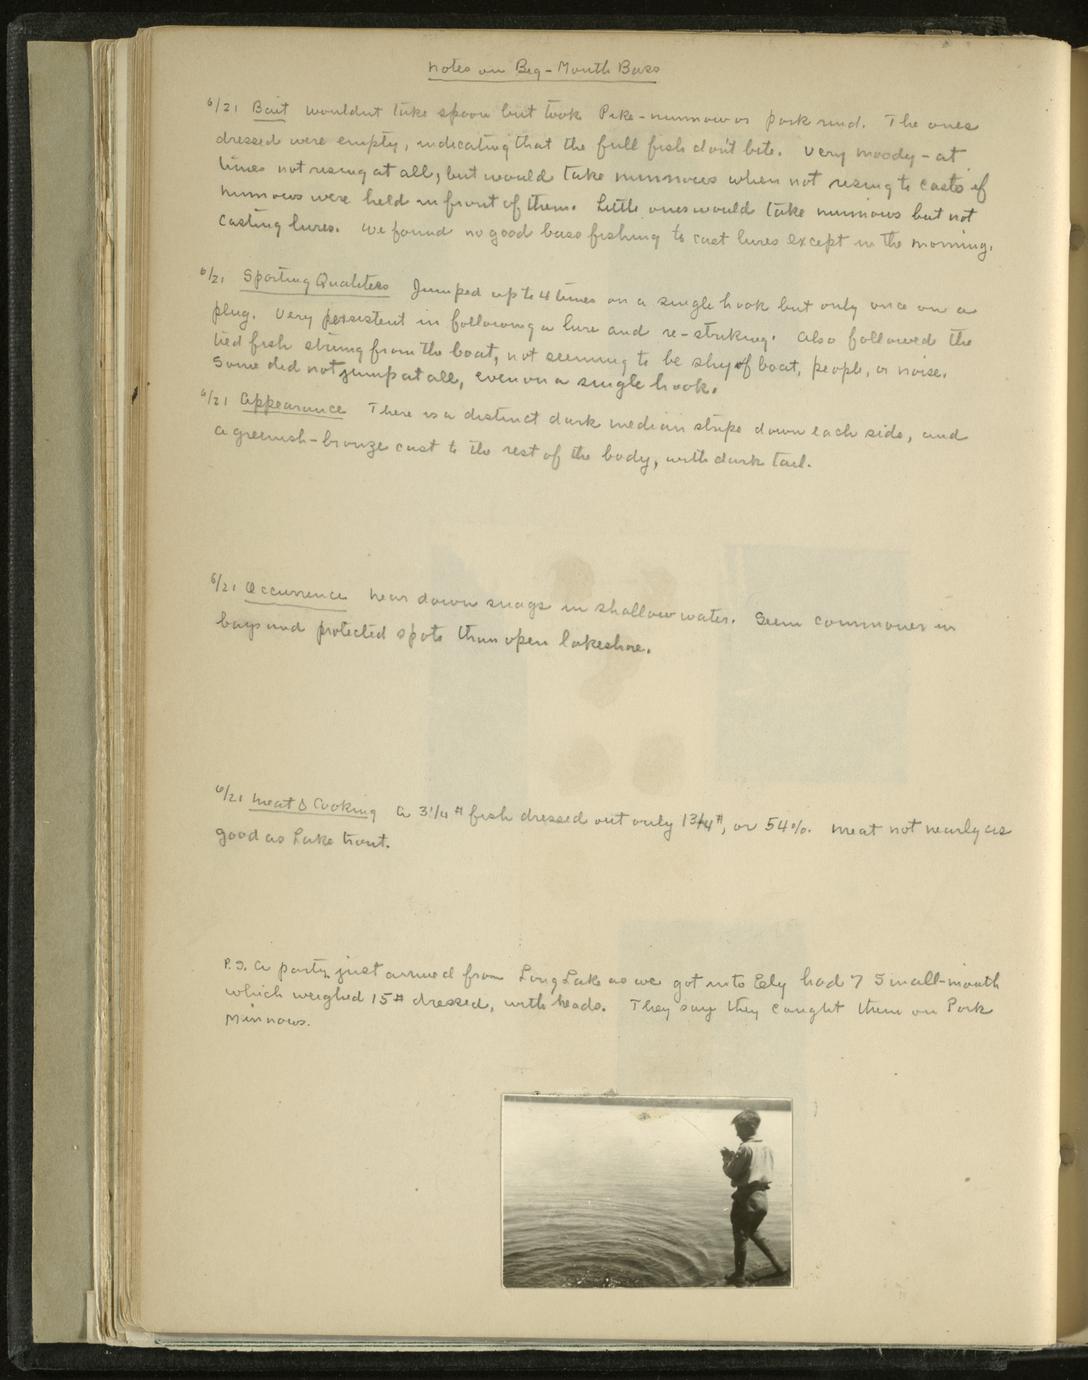 Notes on Big-Mouth Bass
6/21 Bait wouldnt take spoon but took Pike-minnow or pork rind. The ones
dressed were empty, indicating that the full fish don't bite. Very moody - at
times not rising at all, but would take minnows when not rising to casts if
minnows were held in front of them. Little ones would take minnows but not
casting lures. We found no good bass fishing to cast lures except in the morning.
6/21 Sporting Qualities Jumped up to 4 times on a single hook but only once on a
plug. Very persistent in following a lure and re-striking. Also followed the
tied fish strung from the boat, not seeming to be shy of boat, people, or noise.
Some did not jump at all, even on a single hook.
6/21 Appearance There is a distinct dark median stripe down each side, and
a greenish-bronze cast to the rest of the body, with dark tail.
6/21 Occurrence Near down snags in shallow water. Seem commoner in
bays and protected spots than open lakeshore.
6/21 Meat & Cooking A 3 1/4 # fish dressed out only 1 3/4 #, or 54%. Meat not nearly as
good as Lake trout.
P.S. A party just arrived from Long Lake as we got into Ely had 7 Small-mouth
which weighed 15 # dressed, with heads. They say they caught them on Pork
Minnows.